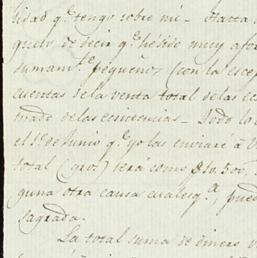 lidad qe. tengo sobre mi - Hasta
quiero decir qe. hé sido muy afor
sumamte. pequeños (con la escep
cuentas de la venta total de las ec
mado de las existencias - Todo lo
el 1o. de Junio qe. yo las enviaré á V
total (gros) será como $10.500,
guna otra causa cualesqa., pued
sagrada.
La total suma de dinero